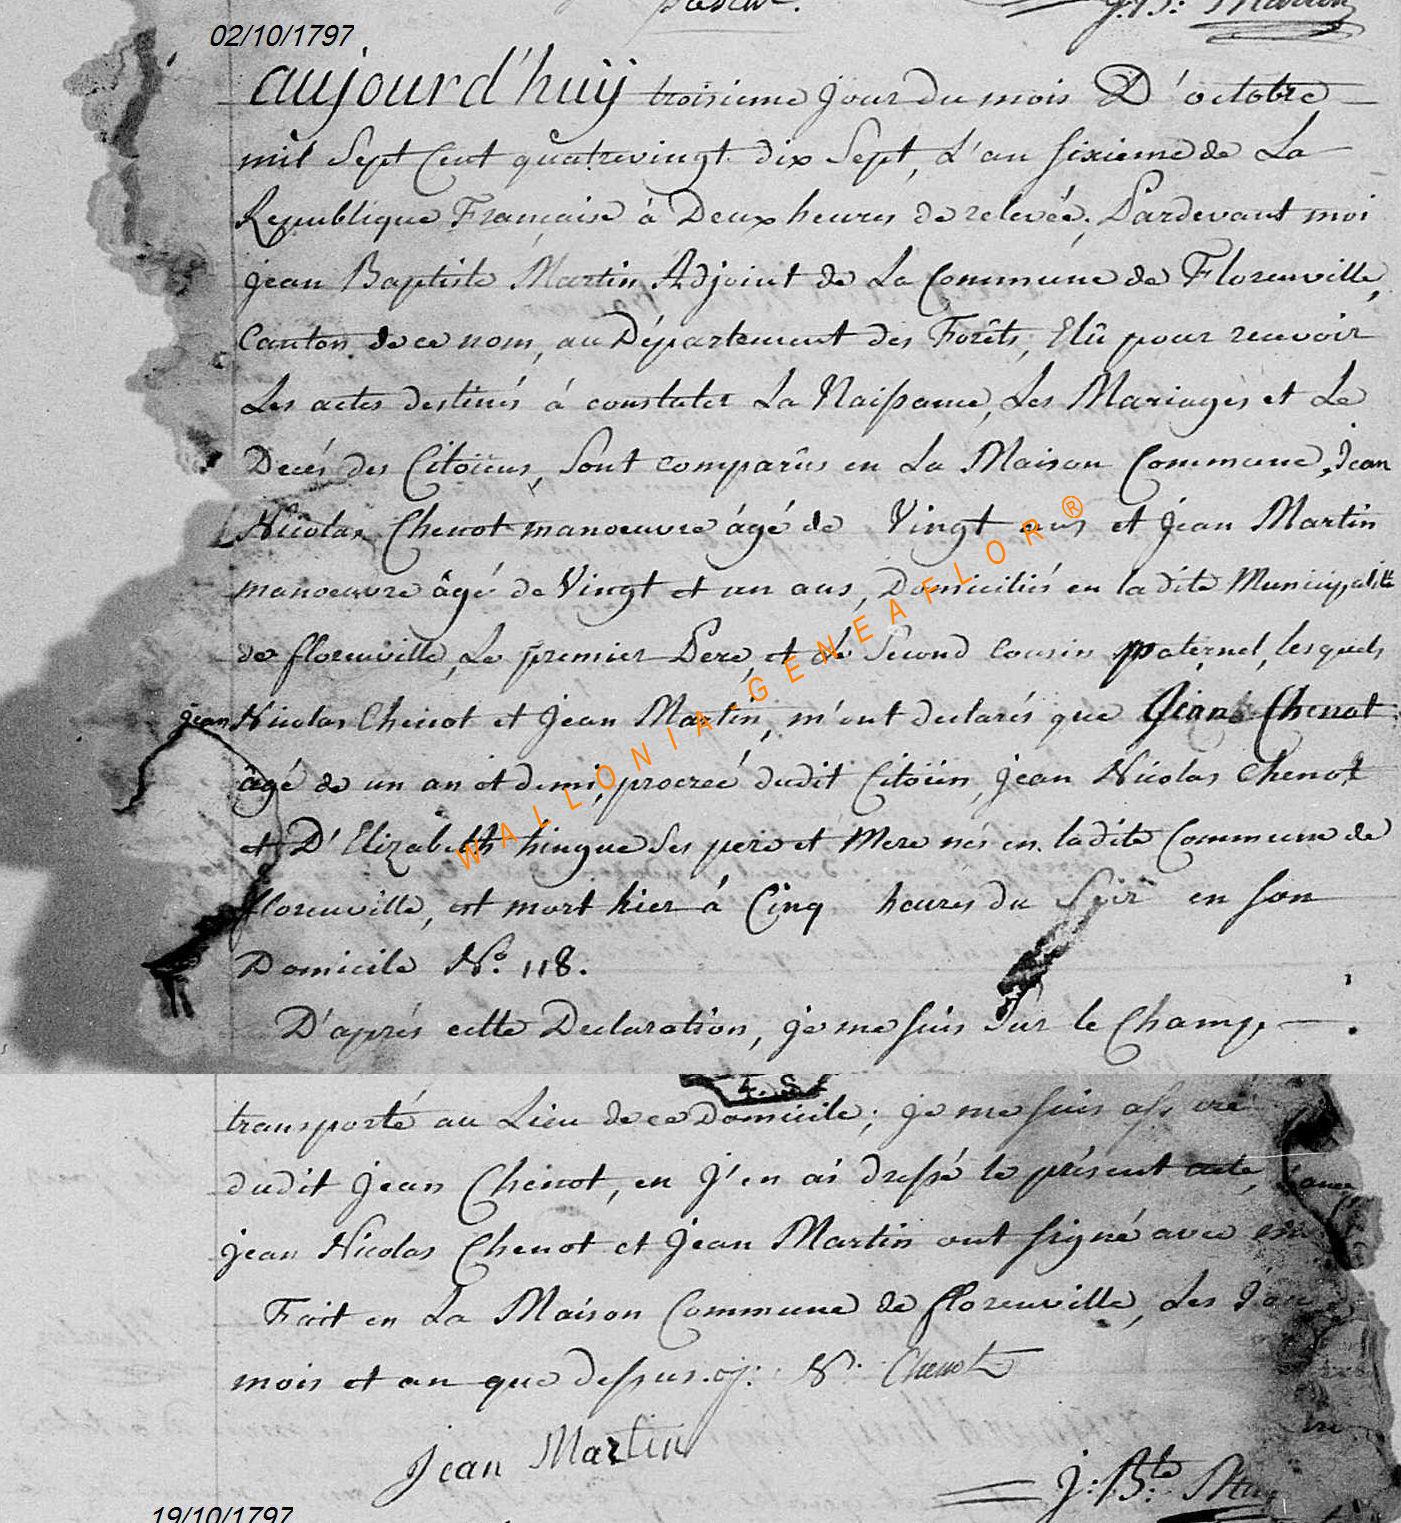 J:B: Martin
02/10/1797
aujourd'huÿ troisieme jour du mois D'octobre
mil Sept Cent quatrevingt dix Sept, L'an sixieme de La
Republique Française à Deux heures de relevée, Pardevant moi
jean Baptiste Martin Adjoint de La Commune de Florenville,
Canton de ce nom, au Département des Forêts, Elû pour recevoir
Les actes destinés à constater La Naissance, Les Mariages et Le
Decés des Citoïens, Sont comparûs en La Maison Commune, Jean
Nicolas Chenot manoeuvre âgé de Vingt ans et Jean Martin
manoeuvre âgé de Vingt et un ans, Domiciliés en la dite Municipalité
de florenville, Le premier Pere, et Le Second cousin paternel, lesquels
jean Nicolas Chenot et Jean Martin, m'ont declarés que Jean Chenot
âgé de un an et demi, procreé dudit Citoïen, jean Nicolas Chenot
et D'Elizabeth hingue Ses pere et Mere nés en ladite Commune de
florenville, est mort hier à Cinq heures du Soir en son
Domicile N.o 118.
D'aprés cette Declaration, je me suis Sur le Champ
WALLONIA-GENEAFLOR®
transporté au Lieu de ce Domicile; je me suis
dudit Jean Chenot, en J'en ai dressé le présent acte,
jean Nicolas Chenot et Jean Martin ont signé avec
Fait en La Maison Commune de florenville, Les
mois et an que dessus. N. Chenot
Jean Martin
J:B:te
19/10/1797